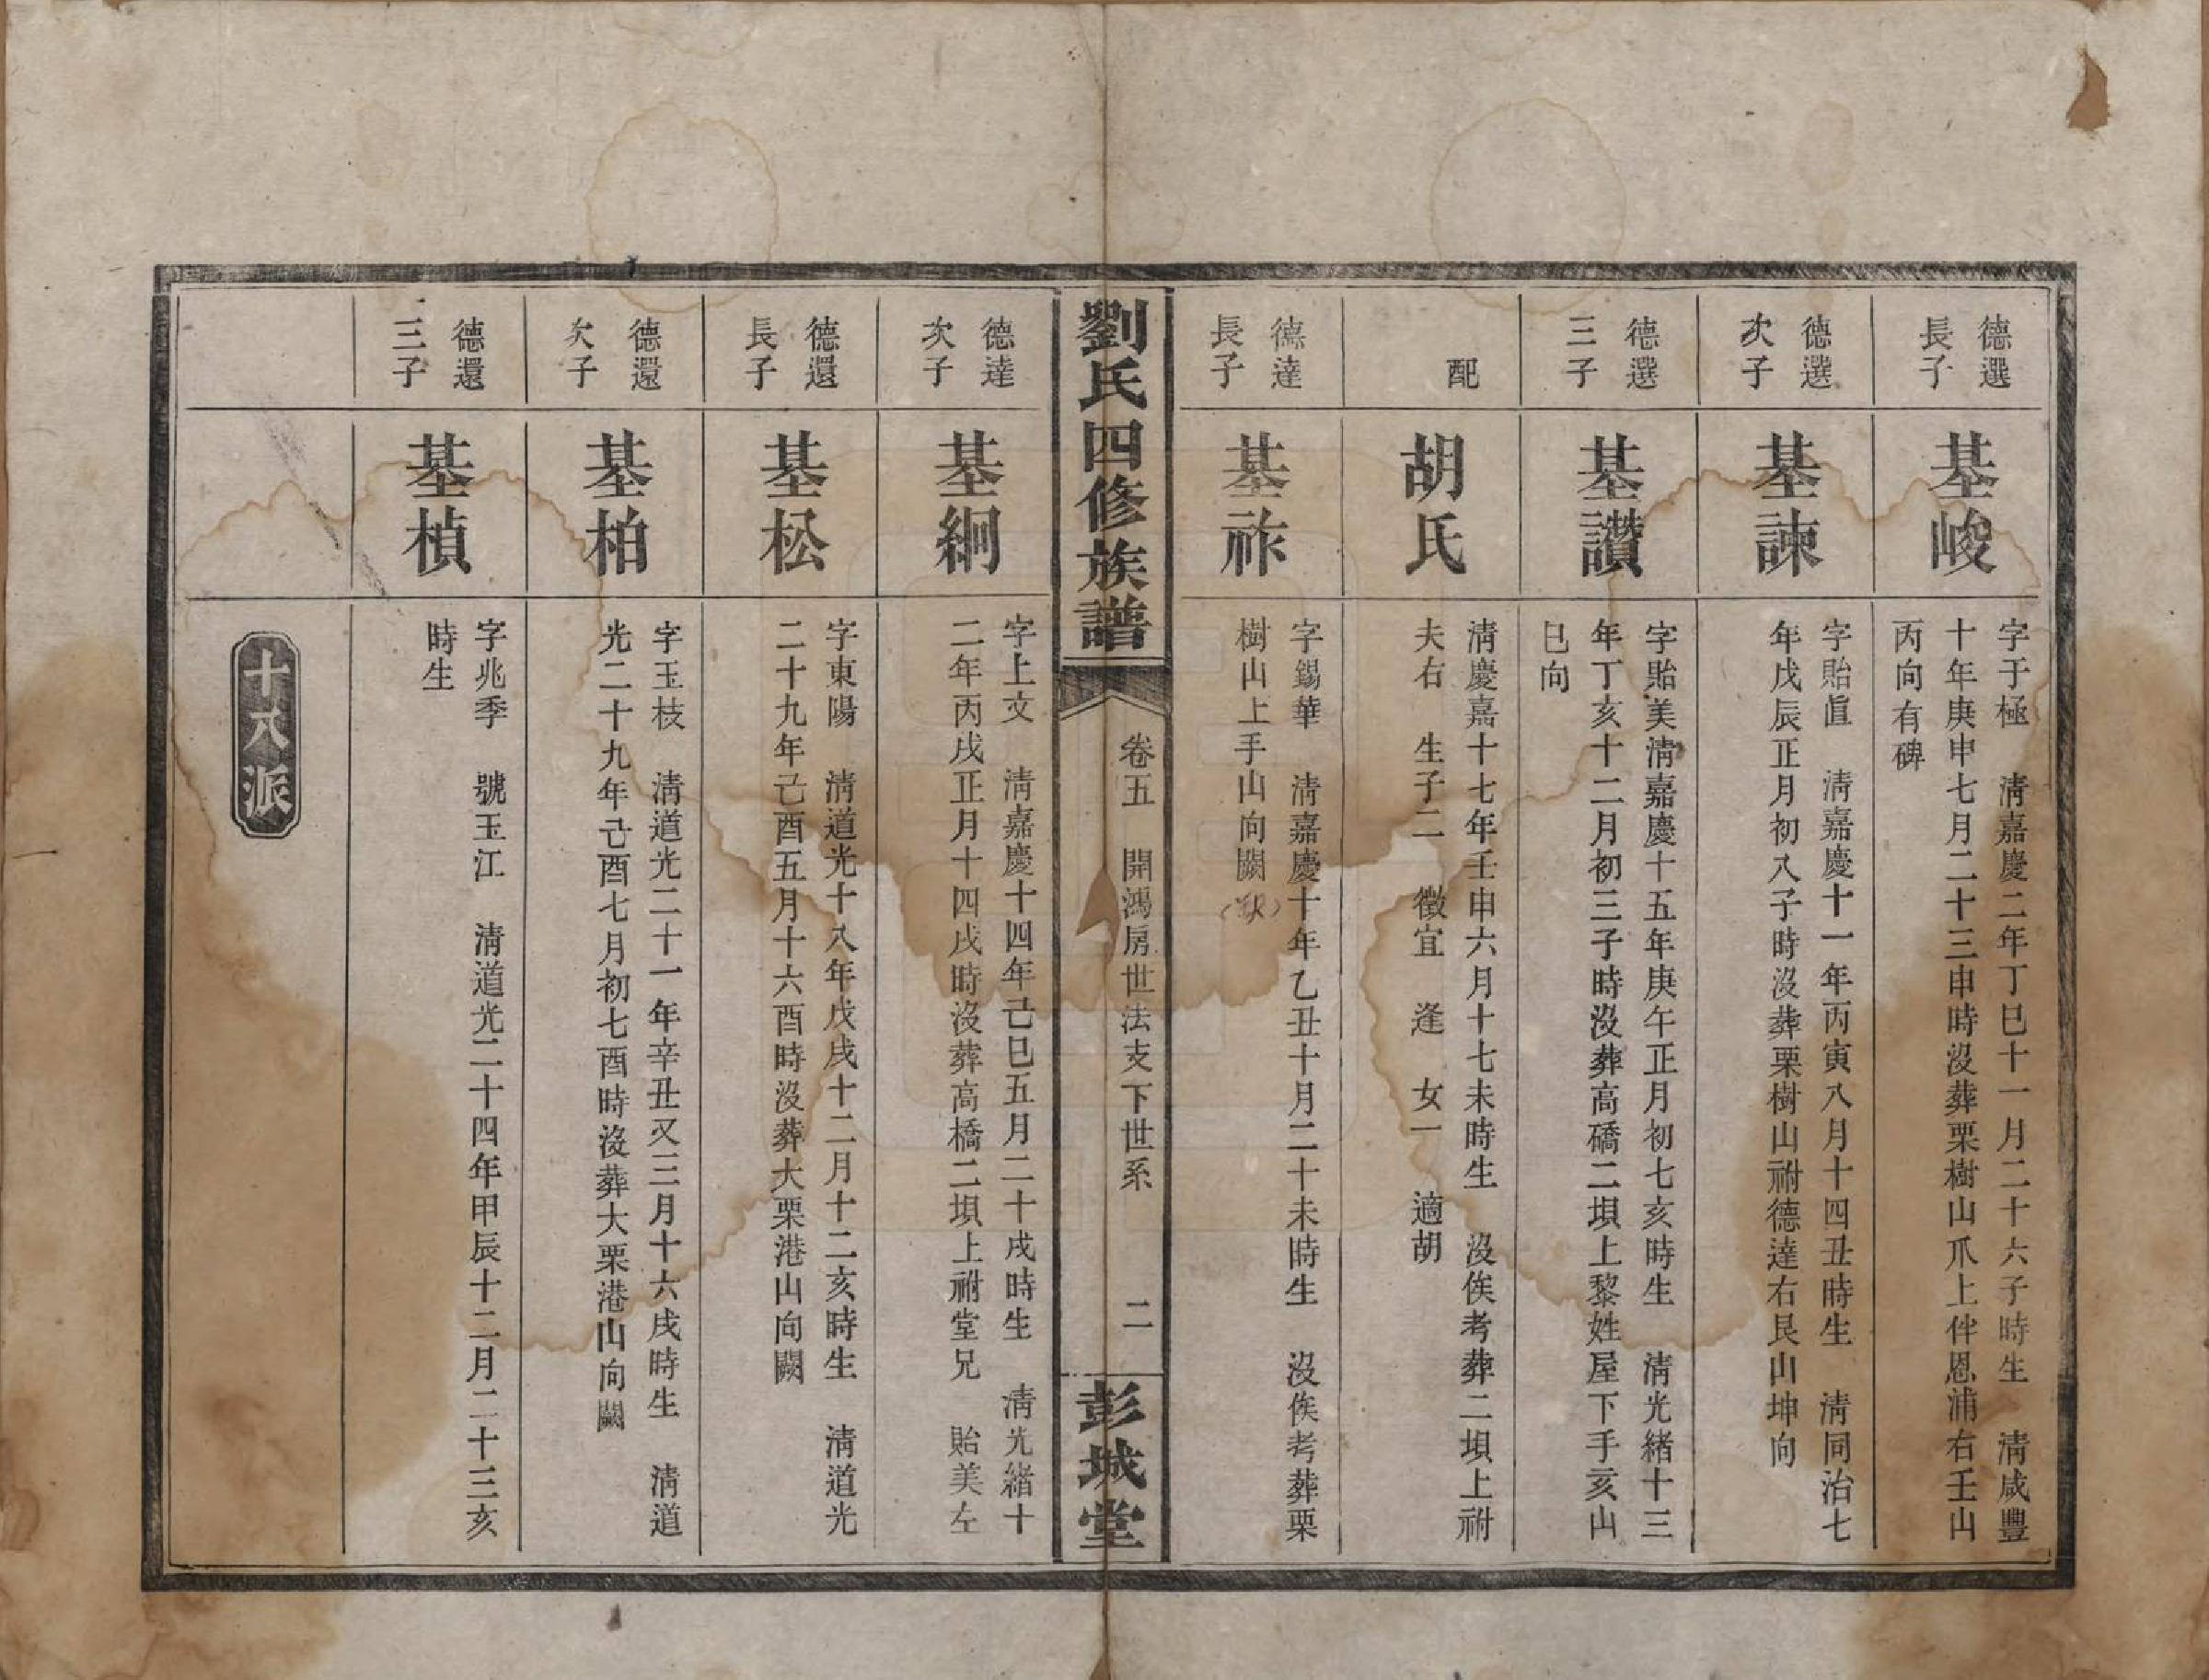 德選
長子
基峻
字于極　淸嘉慶二年丁巳十一月二十六子時生　淸咸豐
十年庚申七月二十三申時沒葬栗樹山爪上伴恩浦右壬山
丙向有碑
德選
次子
基諫
字貽直　淸嘉慶十一年丙寅八月十四丑時生　淸同治七
年戊辰正月初八子時沒葬栗樹山祔德達右艮山坤向
德選
三子
基讚
字貽美淸嘉慶十五年庚午正月初七亥時生　淸光緒十三
年丁亥十二月初三子時沒葬高磽二垻上黎姓屋下手亥山
巳向
配
胡氏
淸慶嘉十七年壬申六月十七未時生　沒俟考葬二垻上祔
夫右　生子二　徵宜　逢　女一　適胡
德達
長子
基祚
字錫華　淸嘉慶十年乙丑十月二十未時生　沒俟考葬栗
樹山上手山向闕
劉氏四修族譜
卷五　開鴻房世法支下世系　二
彭城堂
德達
次子
基綱
字上文　淸嘉慶十四年己巳五月二十戌時生　淸光緒十
二年丙戌正月十四戌時沒葬高橋二垻上祔堂兄　貽美左
德還
長子
基松
字東陽　淸道光十八年戊戌十二月十二亥時生　淸道光
二十九年己酉五月十六酉時沒葬大栗港山向闕
德還
次子
基柏
字玉枝　淸道光二十一年辛丑又三月十六戌時生　淸道
光二十九年己酉七月初七酉時沒葬大栗港山向闕
德還
三子
基楨
字兆季　號玉江　淸道光二十四年甲辰十二月二十三亥
時生
十八派